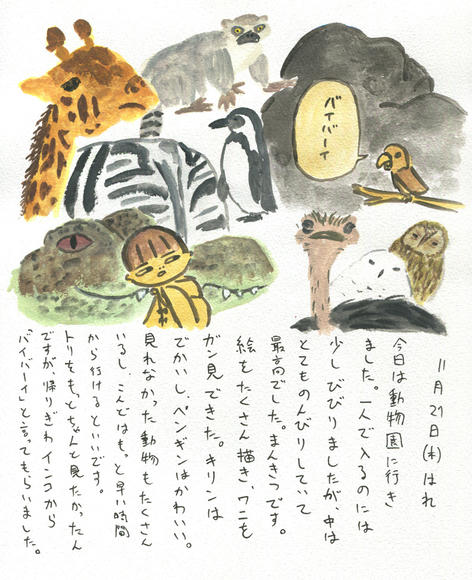 バイバーイ
11月21日(木)はれ
今日は動物園に行き
ました。一人で入るのには
少しびびりましたが、中は
とてものんびりしていて
最高でした。まんきつです。
絵をたくさん描き、ワニを
ガン見できた。キリンは
でかいし、ペンギンはかわいい。
見れなかった動物もたくさん
いるし、こんどはもっと早い時間
から行けるといいです。
トリをもっとちゃんと見たかったん
ですが帰りぎわインコから
「バイバーイ」と言ってもらいました。